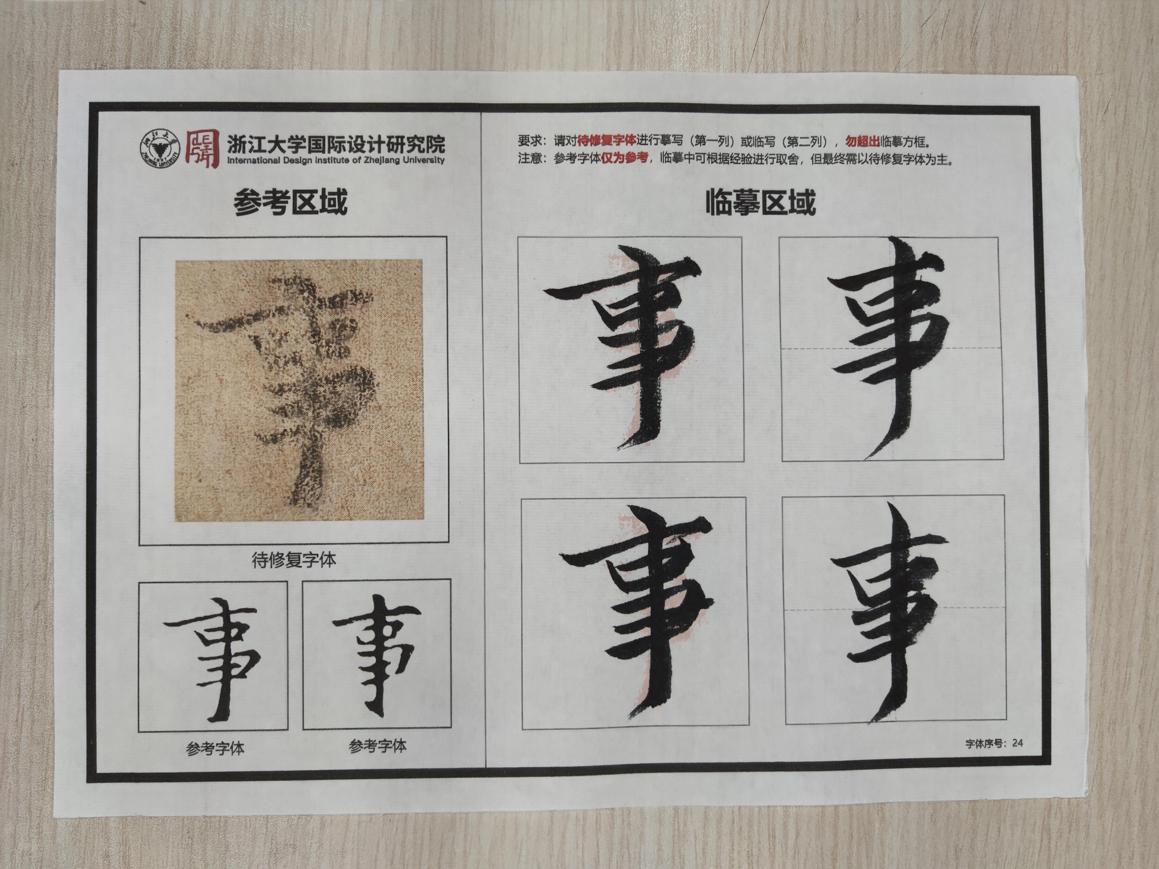 浙江大学国际设计研究院
International Design Institute of Zhejiang University
参考区域
事
待修复字体
事
事
参考字体
参考字体
要求：请对待修复字体进行摹写（第一列）或临写（第二列），勿超出临摹方框。
注意：参考字体仅为参考，临摹中可根据经验进行取舍，但最终需以待修复字体为主。
临摹区域
事
事
事
事
字体序号：24